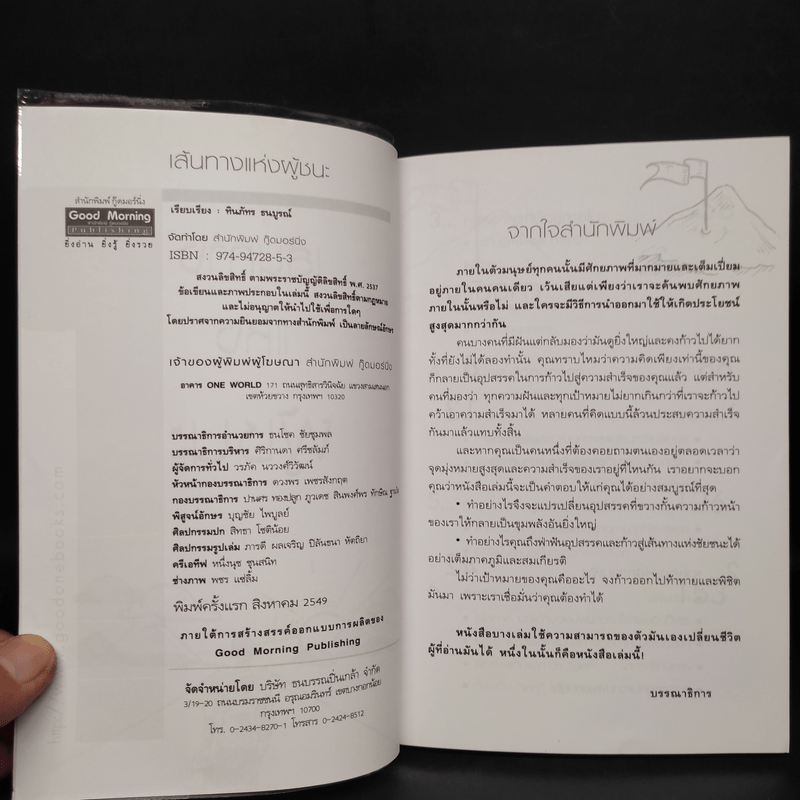 เส้นทางแห่งผู้ชนะ
สำนักพิมพ์ กู๊ดมอร์นิ่ง
Good Morning
Publishing
ยิ่งอ่าน ยิ่งรู้ ยิ่งรวย
เรียบเรียง : ทินภัทร ธนบูรณ์
จัดทำโดย สำนักพิมพ์ กู๊ดมอร์นิ่ง
ISBN : 974-94728-5-3
สงวนลิขสิทธิ์ ตามพระราชบัญญัติลิขสิทธิ์ พ.ศ. 2537
ข้อเขียนและภาพประกอบในเล่มนี้ สงวนลิขสิทธิ์ตามกฎหมาย
และไม่อนุญาตให้นำไปใช้เพื่อการใดๆ
โดยปราศจากความยินยอมจากทางสำนักพิมพ์ เป็นลายลักษณ์อักษร
เจ้าของผู้พิมพ์ผู้โฆษณา สำนักพิมพ์ กู๊ดมอร์นิ่ง
อาคาร ONE WORLD 171 ถนนสุทธิสารวินิจฉัย แขวงสามเสนนอก
เขตห้วยขวาง กรุงเทพฯ 10320
บรรณาธิการอำนวยการ ธนโชค ชัยชุมพล
บรรณาธิการบริหาร ศิริกานดา ศรีชลัมภ์
ผู้จัดการทั่วไป วรภัค นววงศ์วิวัฒน์
หัวหน้ากองบรรณาธิการ ดวงพร เพชรสังกฤต
กองบรรณาธิการ ปานศร ทองปลูก ภูวเดช สินพงศ์พร ทักษิณ
พิสูจน์อักษร บุญชัย ไพบูลย์
ศิลปกรรมปก สิทธา โชติน้อย
ศิลปกรรมรูปเล่ม ภารดี ผลเจริญ ปิลันธนา หัตถิยา
ครีเอทีฟ หนึ่งนุช ชุนสนิท
ช่างภาพ พชร แซ่ลิ้ม
พิมพ์ครั้งแรก สิงหาคม 2549
ภายใต้การสร้างสรรค์ออกแบบการผลิตของ
Good Morning Publishing
จัดจำหน่ายโดย บริษัท ธนบรรณปิ่นเกล้า จำกัด
3/19-20 ถนนบรมราชชนนี อรุณอมรินทร์ เขตบางกอกน้อย
กรุงเทพฯ 10700
โทร. 0-2434-8270-1 โทรสาร 0-2424-8512
จากใจสำนักพิมพ์
ภายในตัวมนุษย์ทุกคนนั้นมีศักยภาพที่มากมายและเต็มเปี่ยม
อยู่ภายในคนคนเดียว เว้นเสียแต่เพียงว่าเราจะค้นพบศักยภาพ
ภายในนั้นหรือไม่ และใครจะมีวิธีการนำออกมาใช้ให้เกิดประโยชน์
สูงสุดมากกว่ากัน
คนบางคนที่มีฝันแต่กลับมองว่ามันดูยิ่งใหญ่และคงก้าวไปได้ยาก
ทั้งที่ยังไม่ได้ลองทำนั้น คุณทราบไหมว่าความคิดเพียงเท่านี้ของคุณ
ก็กลายเป็นอุปสรรคในการก้าวไปสู่ความสำเร็จของคุณแล้ว แต่สำหรับ
คนที่มองว่า ทุกความฝันและทุกเป้าหมายไม่ยากเกินกว่าที่เราจะก้าวไป
คว้าเอาความสำเร็จมาได้ หลายคนที่คิดแบบนี้ล้วนประสบความสำเร็จ
กันมาแล้วแทบทั้งสิ้น
และหากคุณเป็นคนหนึ่งที่ต้องคอยถามตนเองอยู่ตลอดเวลาว่า
จุดมุ่งหมายสูงสุดและความสำเร็จของเราอยู่ที่ไหนกัน เราอยากจะบอก
คุณว่าหนังสือเล่มนี้จะเป็นคำตอบให้แก่คุณได้อย่างสมบูรณ์ที่สุด
• ทำอย่างไรจึงจะแปรเปลี่ยนอุปสรรคที่ขวางกั้นความก้าวหน้า
ของเราให้กลายเป็นขุมพลังอันยิ่งใหญ่
• ทำอย่างไรคุณถึงฝ่าฟันอุปสรรคและก้าวสู่เส้นทางแห่งชัยชนะได้
อย่างเต็มภาคภูมิและสมเกียรติ
ไม่ว่าเป้าหมายของคุณคืออะไร จงก้าวออกไปท้าทายและพิชิต
มันมา เพราะเราเชื่อมั่นว่าคุณต้องทำได้
หนังสือบางเล่มใช้ความสามารถของตัวมันเองเปลี่ยนชีวิต
ผู้ที่อ่านมันได้ หนึ่งในนั้นก็คือหนังสือเล่มนี้!
บรรณาธิการ